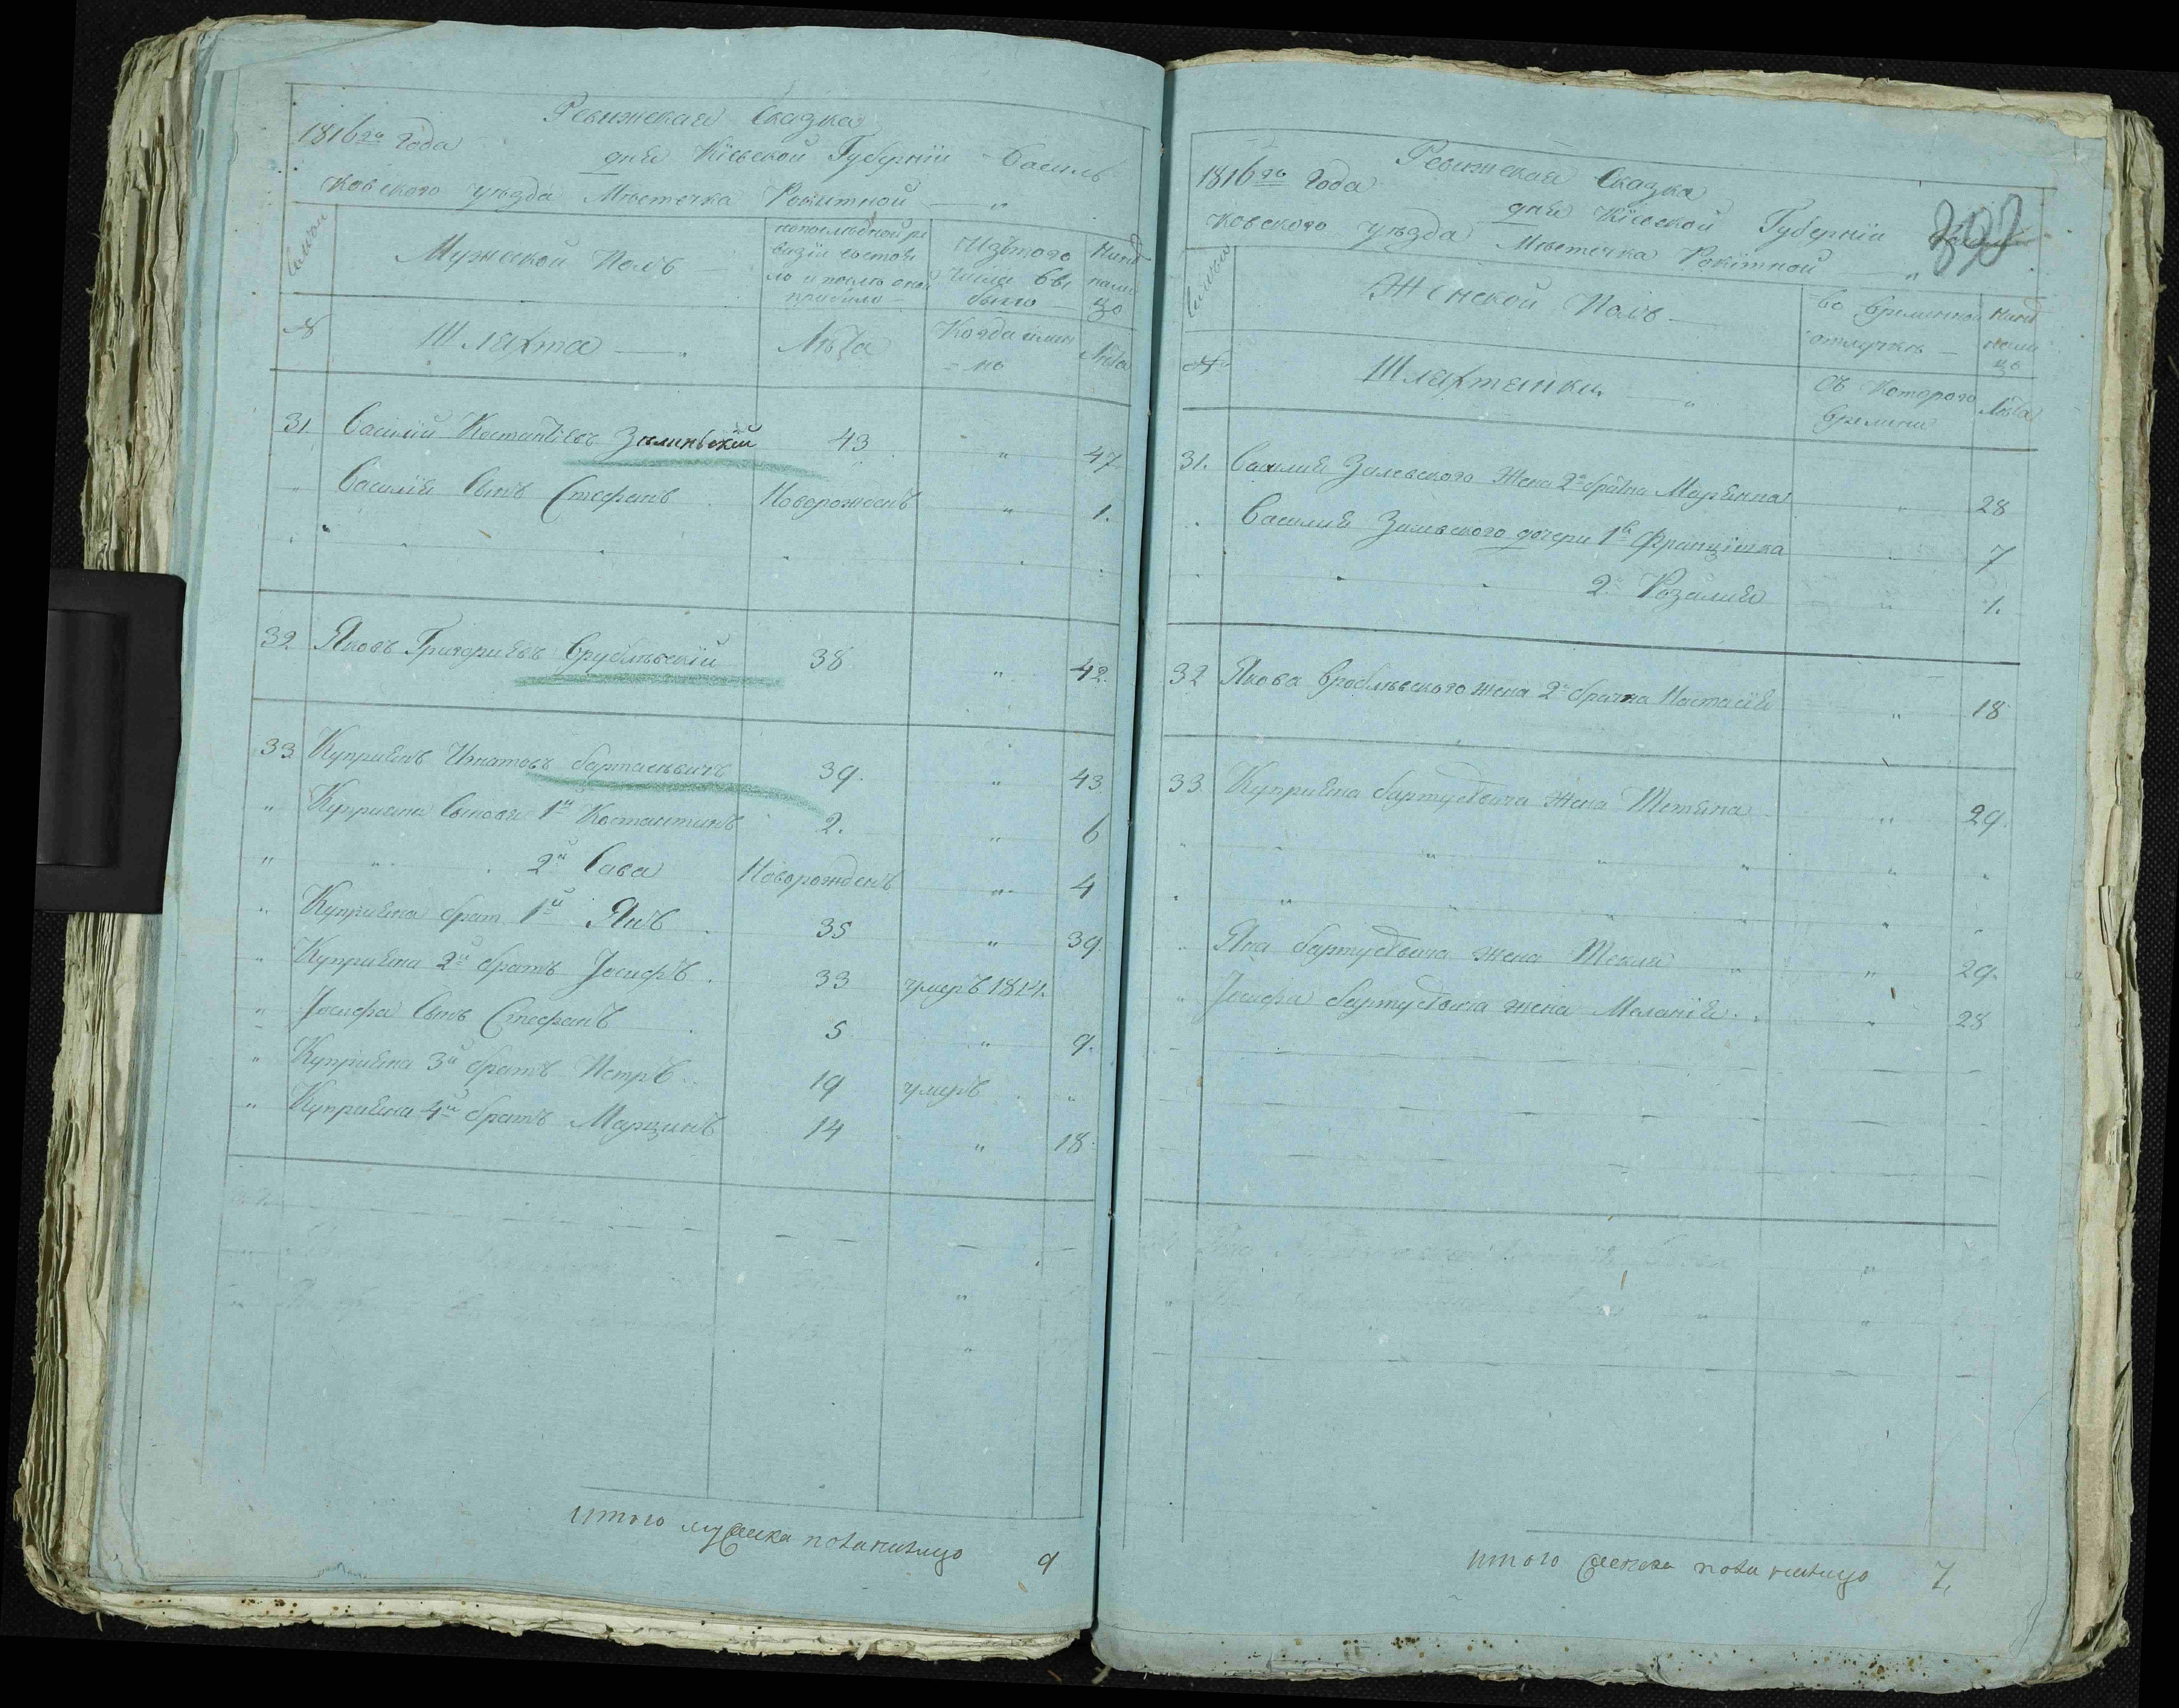 Ревижская Сказка
1816го года дня Кіевской Губерніи Василь
ковского уезда Местечка Рокитной
Семьи
Мужеской Полъ
попоследной ре
визіи состоя
ло и после оной
прибыло
Изътого
числа вы
было
Нынѣ
нали
цо
№
Шляхта
Лѣта
Когда имян
но
Лѣта
31 Василій Костантіевъ Зелиньскій 43 " 47.
" Василія Сынъ Стефанъ Новорожденъ " 1.
32 Яковъ Григориевъ Врублевскій 38 " 42.
33 Куприянъ Игнатовъ бартасевичъ 39. " 43
" Куприяна Сыновя 1й Костантинъ 2. " 6
" " 2й Сава Новорожденъ " 4
" Куприяна брат 1й Янъ 35 " 39.
" Куприяна 2й братъ Іосифъ 33 умеръ 1814.
" Іосифа Сынъ Стефанъ 5 " 9.
" Куприяна 3й братъ Петръ 19 умеръ "
" Куприяна 4й братъ Марцинъ 14 " 18.
итого мужска пола налицо 9
Ревижская Сказка
1816го года дня Кіевской Губерніи
ковского уезда Местечка Рокитной
Семьи
Женской Полъ
во временной
отлучкѣ
Нынѣ
нали
цо
№
Шляхтянки
Съ Которого
времени
Лѣта
31. Василия Залевского Жена 2й брачна Марянна " 28
Василия Залевского дочери 1я Францішка 7
2я Розалия " 1.
32 Якова Вроблевского жена 2й брачна Настасія " 18
33 Куприяна бартусевича Жена Тетяна " 29.
" Яна бартусевича жена Текля " 29.
" Іосифа бартусевича жена Меланія " 28
итого женска пола налицо 7.